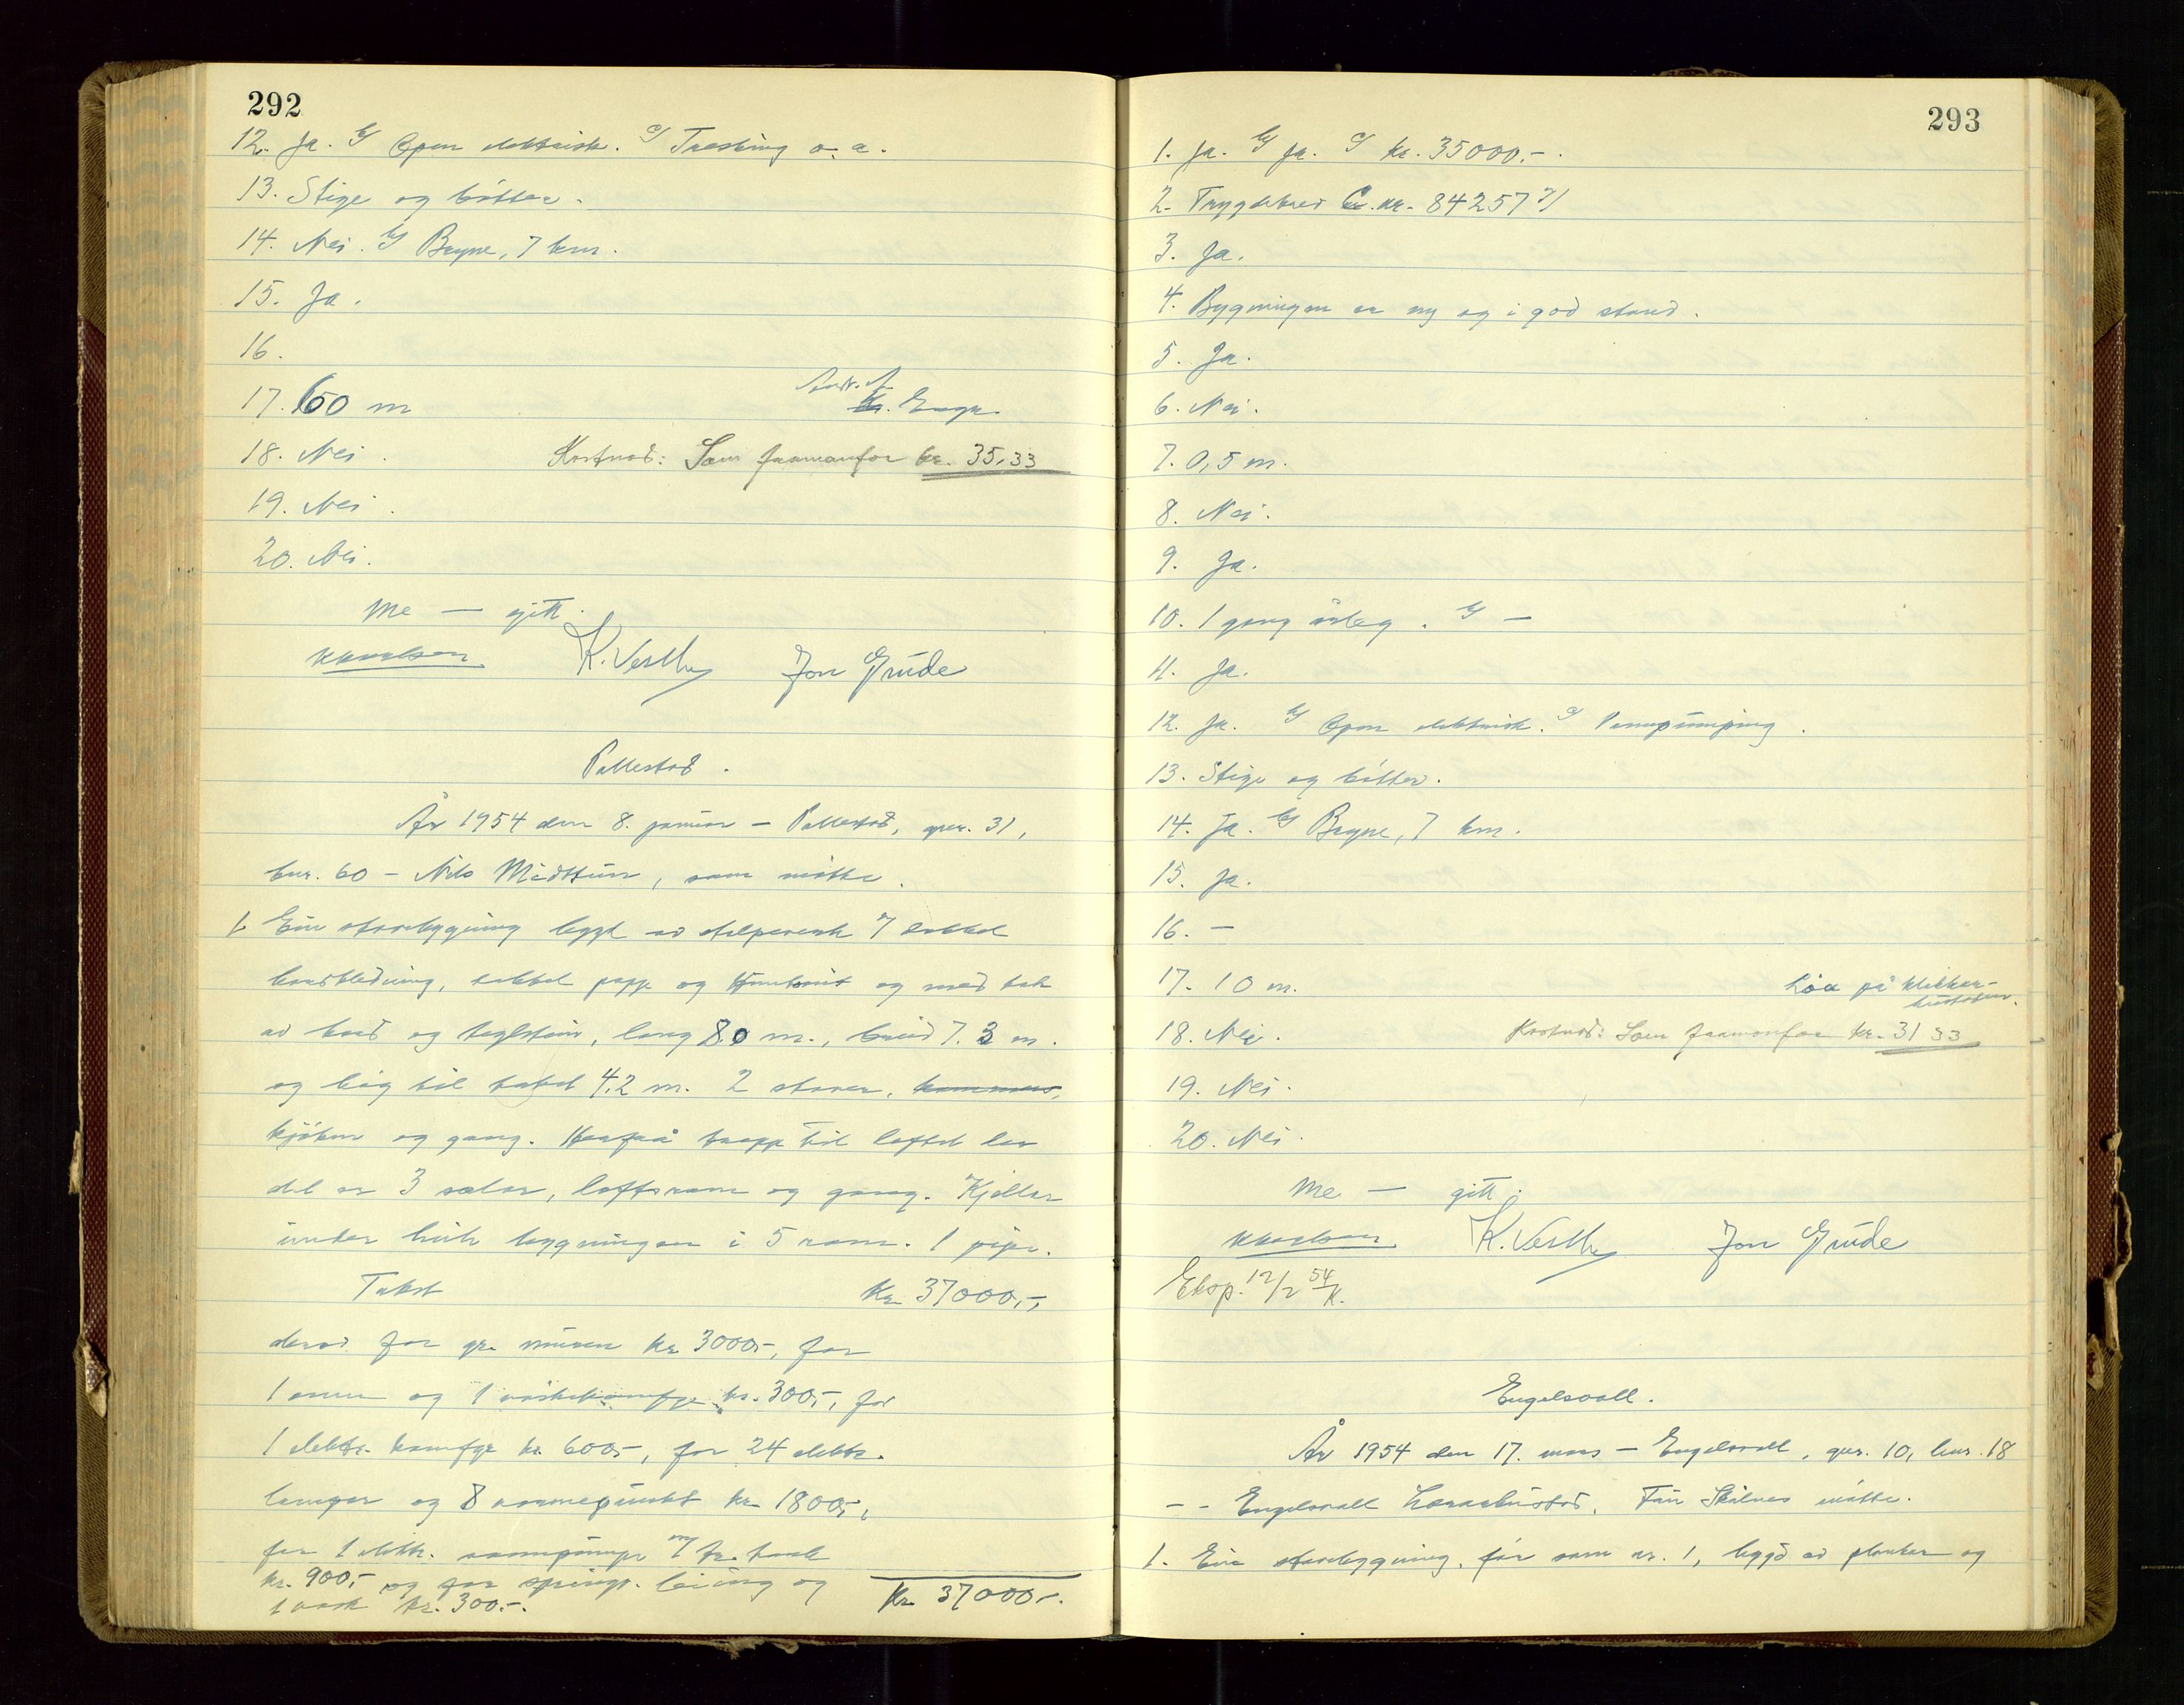 292
12. Ja. b/ Open elektrisk. c/ Tresking o. a.
13. Stige og bøtter.
14. Nei. b/ Bryne, 7 km.
15. Ja.
16.
17. 60 m
18. Nei.
Kostnad: Som framanfor kr. 35,33
19. Nei.
20. Nei.
Me — gitt.
K. Vestly Jon Grude
Pollestad.
År 1954 den 8. januar — Pollestad, gnr. 31,
bnr. 60 — Nils Midttun, som møtte.
1. Ein stovebygning bygt av stolpeverk m/ dobbel
bordkledning, dobbel papp og og med tak
av bord og teglstein, lang 8.0 m., breid 7.3 m.
og høg til taket 4.2 m. 2 stover, kammers,
kjøken og gang. Herfrå trapp til loftet der
det er 3 salar, loftsrom og gang. Kjellar
under heile bygningen i 5 rom. 1 pipe.
Takst Kr. 37000,-,
derav for gr. muren kr. 3000,-, for
1 omn og 1 vaskekomfyr kr. 300,-, for
1 elektr. komfyr kr. 600,-, for 24 elektr.
lamper og 8 varmepunkt kr. 1800,-,
for 1 elektr. vasspumpe m/ tr. tank
kr. 900,- og for springv. leiing og
1 vask kr. 300,-. Kr. 37000,-.
293
1. Ja. b/ Ja. c/ kr. 35000,-.
2. Trygdebrev nr. 84257
3. Ja.
4. Bygningen er ny og i god stand.
5. Ja.
6. Nei.
7. 0,5 m.
8. Nei.
9. Ja.
10. 1 gong årleg. b/ —
11. Ja.
12. Ja. b/ Open elektrisk. c/ Vasspumping.
13. Stige og bøtter.
14. Ja. b/ Bryne, 7 km.
15. Ja.
16. —
17. 10 m.
Løa på
18. Nei.
Kostnad: Som framanfor kr. 31 33
19. Nei.
20. Nei.
Me — gitt.
K. Vestly Jon Grude
Eksp. 12/2 54 K.
Engelsvoll.
År 1954 den 17. mars — Engelsvoll, gnr. 10, bnr. 18
— — Engelsvoll Lærarbustad. møtte.
1. Ein stovebygning, før som nr. 1, bygd av plankar og